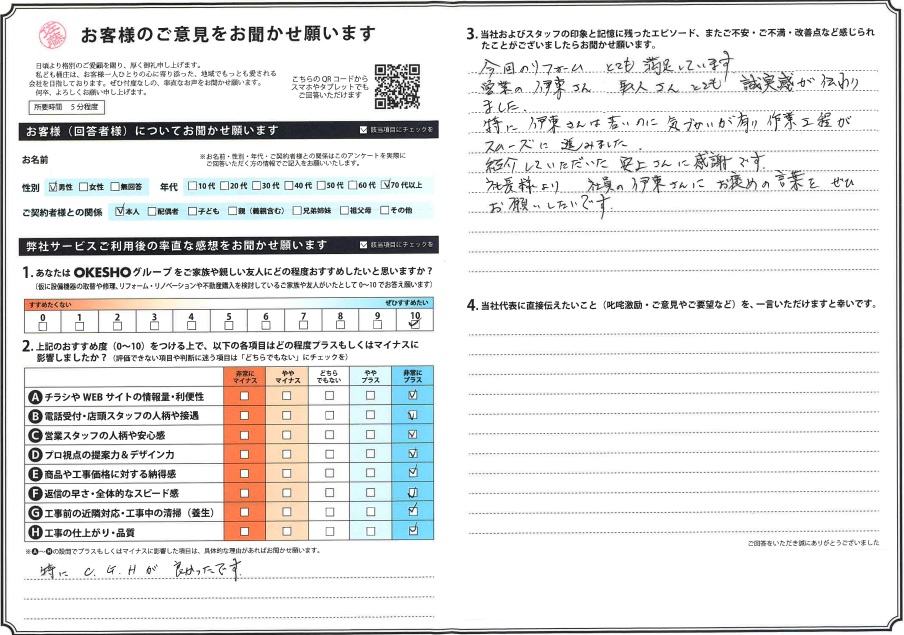 お客様のご意見をお聞かせ願います
日頃より格別のご愛顧を賜り、厚く御礼申し上げます。
私ども桶庄は、お客様一人ひとりの心に寄り添った、地域でもっとも愛される
会社を目指しております。ぜひ忖度なしの、率直なお声をお聞かせ願います。
何卒、よろしくお願い申し上げます。
所要時間 5分程度
こちらのQRコードから
スマホやタブレットでも
ご回答いただけます
お客様（回答者様）についてお聞かせ願います
☑ 該当項目にチェックを
お名前
※お名前・性別・年代・ご契約者様との関係はこのアンケートを実際に
ご回答いただく方の情報でご記入をお願いいたします。
性別 ☑男性 □女性 □無回答 年代 □10代 □20代 □30代 □40代 □50代 □60代 ☑70代以上
ご契約者様との関係 ☑本人 □配偶者 □子ども □親（義親含む） □兄弟姉妹 □祖父母 □その他
弊社サービスご利用後の率直な感想をお聞かせ願います
☑ 該当項目にチェックを
1. あなたは OKESHO グループをご家族や親しい友人にどの程度おすすめしたいと思いますか？
（仮に設備機器の取替や修理、リフォーム・リノベーションや不動産購入を検討しているご家族や友人がいたとして0〜10でお答え願います）
すすめたくない ぜひすすめたい
0 1 2 3 4 5 6 7 8 9 10
□ □ □ □ □ □ □ □ □ □ ☑
2. 上記のおすすめ度（0〜10）をつける上で、以下の各項目はどの程度プラスもしくはマイナスに
影響しましたか？（評価できない項目や判断に迷う項目は「どちらでもない」にチェックを）
非常にマイナス ややマイナス どちらでもない ややプラス 非常にプラス
A チラシやWEBサイトの情報量・利便性 □ □ □ □ ☑
B 電話受付・店頭スタッフの人柄や接遇 □ □ □ □ ☑
C 営業スタッフの人柄や安心感 □ □ □ □ ☑
D プロ視点の提案力＆デザイン力 □ □ □ □ ☑
E 商品や工事価格に対する納得感 □ □ □ □ ☑
F 返信の早さ・全体的なスピード感 □ □ □ □ ☑
G 工事前の近隣対応・工事中の清掃（養生） □ □ □ □ ☑
H 工事の仕上がり・品質 □ □ □ □ ☑
※A〜Hの設問でプラスもしくはマイナスに影響した項目は、具体的な理由があればお聞かせ願います。
特に C. G. Hが 良かったです.
3. 当社およびスタッフの印象と記憶に残ったエピソード、またご不安・ご不満・改善点など感じられ
たことがございましたらお聞かせ願います。
今回のリフォーム とても 満足しています
営業の 伊東さん さん とても 誠実感が伝わり
ました.
特に 伊東さんは若いのに 気づかいが有り 作業工程が
スムーズに 進みました.
紹介していただいた 安上さんに感謝です.
社長様より 社員の伊東さんに お褒めの言葉を ぜひ
お願いしたいです.
4. 当社代表に直接伝えたいこと（叱咤激励・ご意見やご要望など）を、一言いただけますと幸いです。
ご回答をいただき誠にありがとうございました